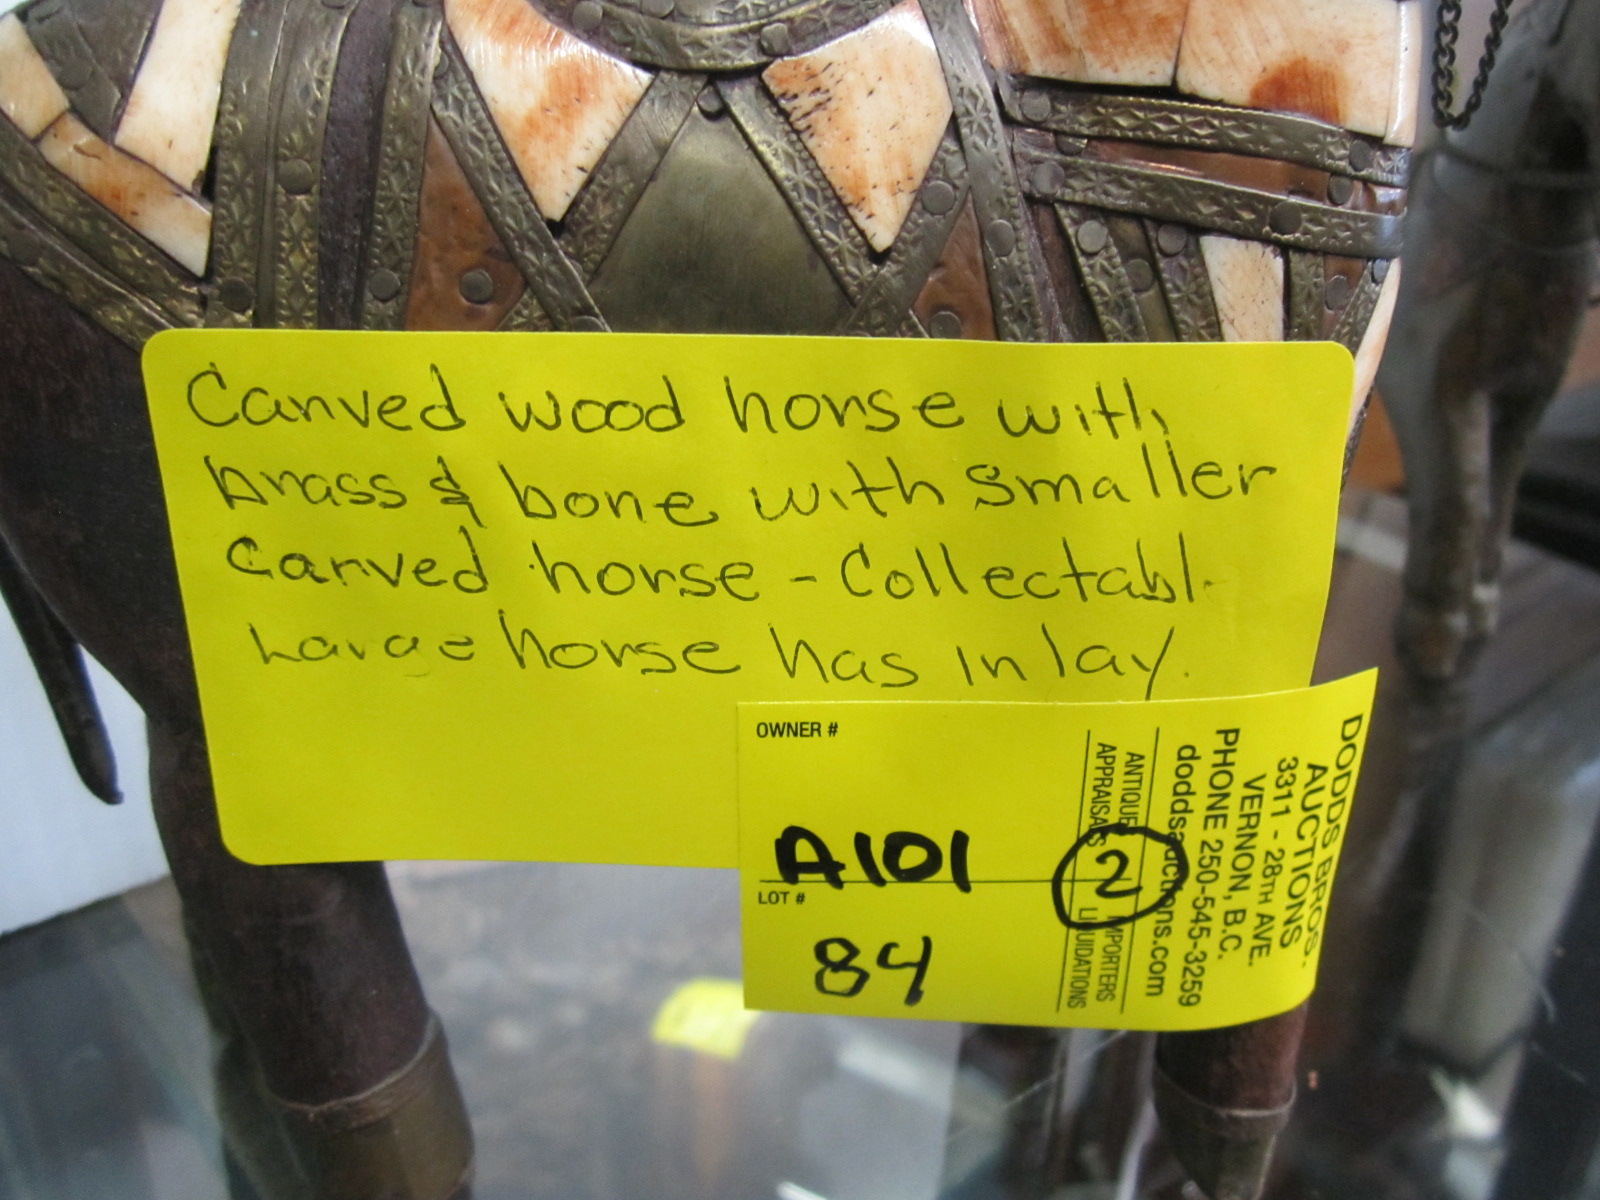 Carved wood horse with
brass & bone with smaller
carved horse - Collectabl
Large horse has inlay.
OWNER #
A101
LOT #
84
2
DODDS BROS.
AUCTIONS
3311 - 28TH AVE.
VERNON, B.C.
PHONE 250-545-3259
doddsauctions.com
ANTIQUE IMPORTERS
APPRAISALS LIQUIDATIONS